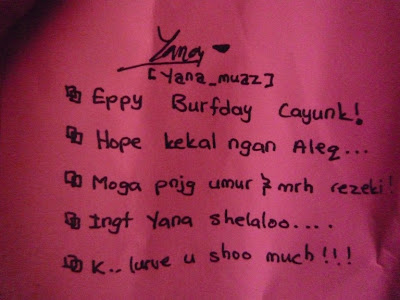 Yana
[Yana_muaz]
Eppy Burfday Cayunk!
Hope kekal ngan Aleq...
Moga pnjg umur & mrh rezeki!
Ingt Yana shelaloo....
K.. lurve u shoo much!!!